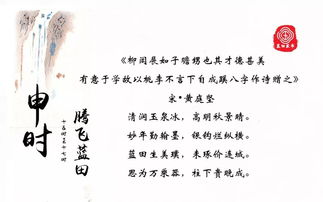 《柳闳展如子瞻甥也其才德甚美
有意于学故以桃李不言下自成蹊八字作诗赠之》
宋•黄庭坚
清润玉泉冰，高明秋景晴。
妙年勤翰墨，银钩烂纵横。
蓝田生美璞，来琢价连城。
思为万乘器，柱下贵晚成。
申时
十五时至十七时
腾飞蓝田